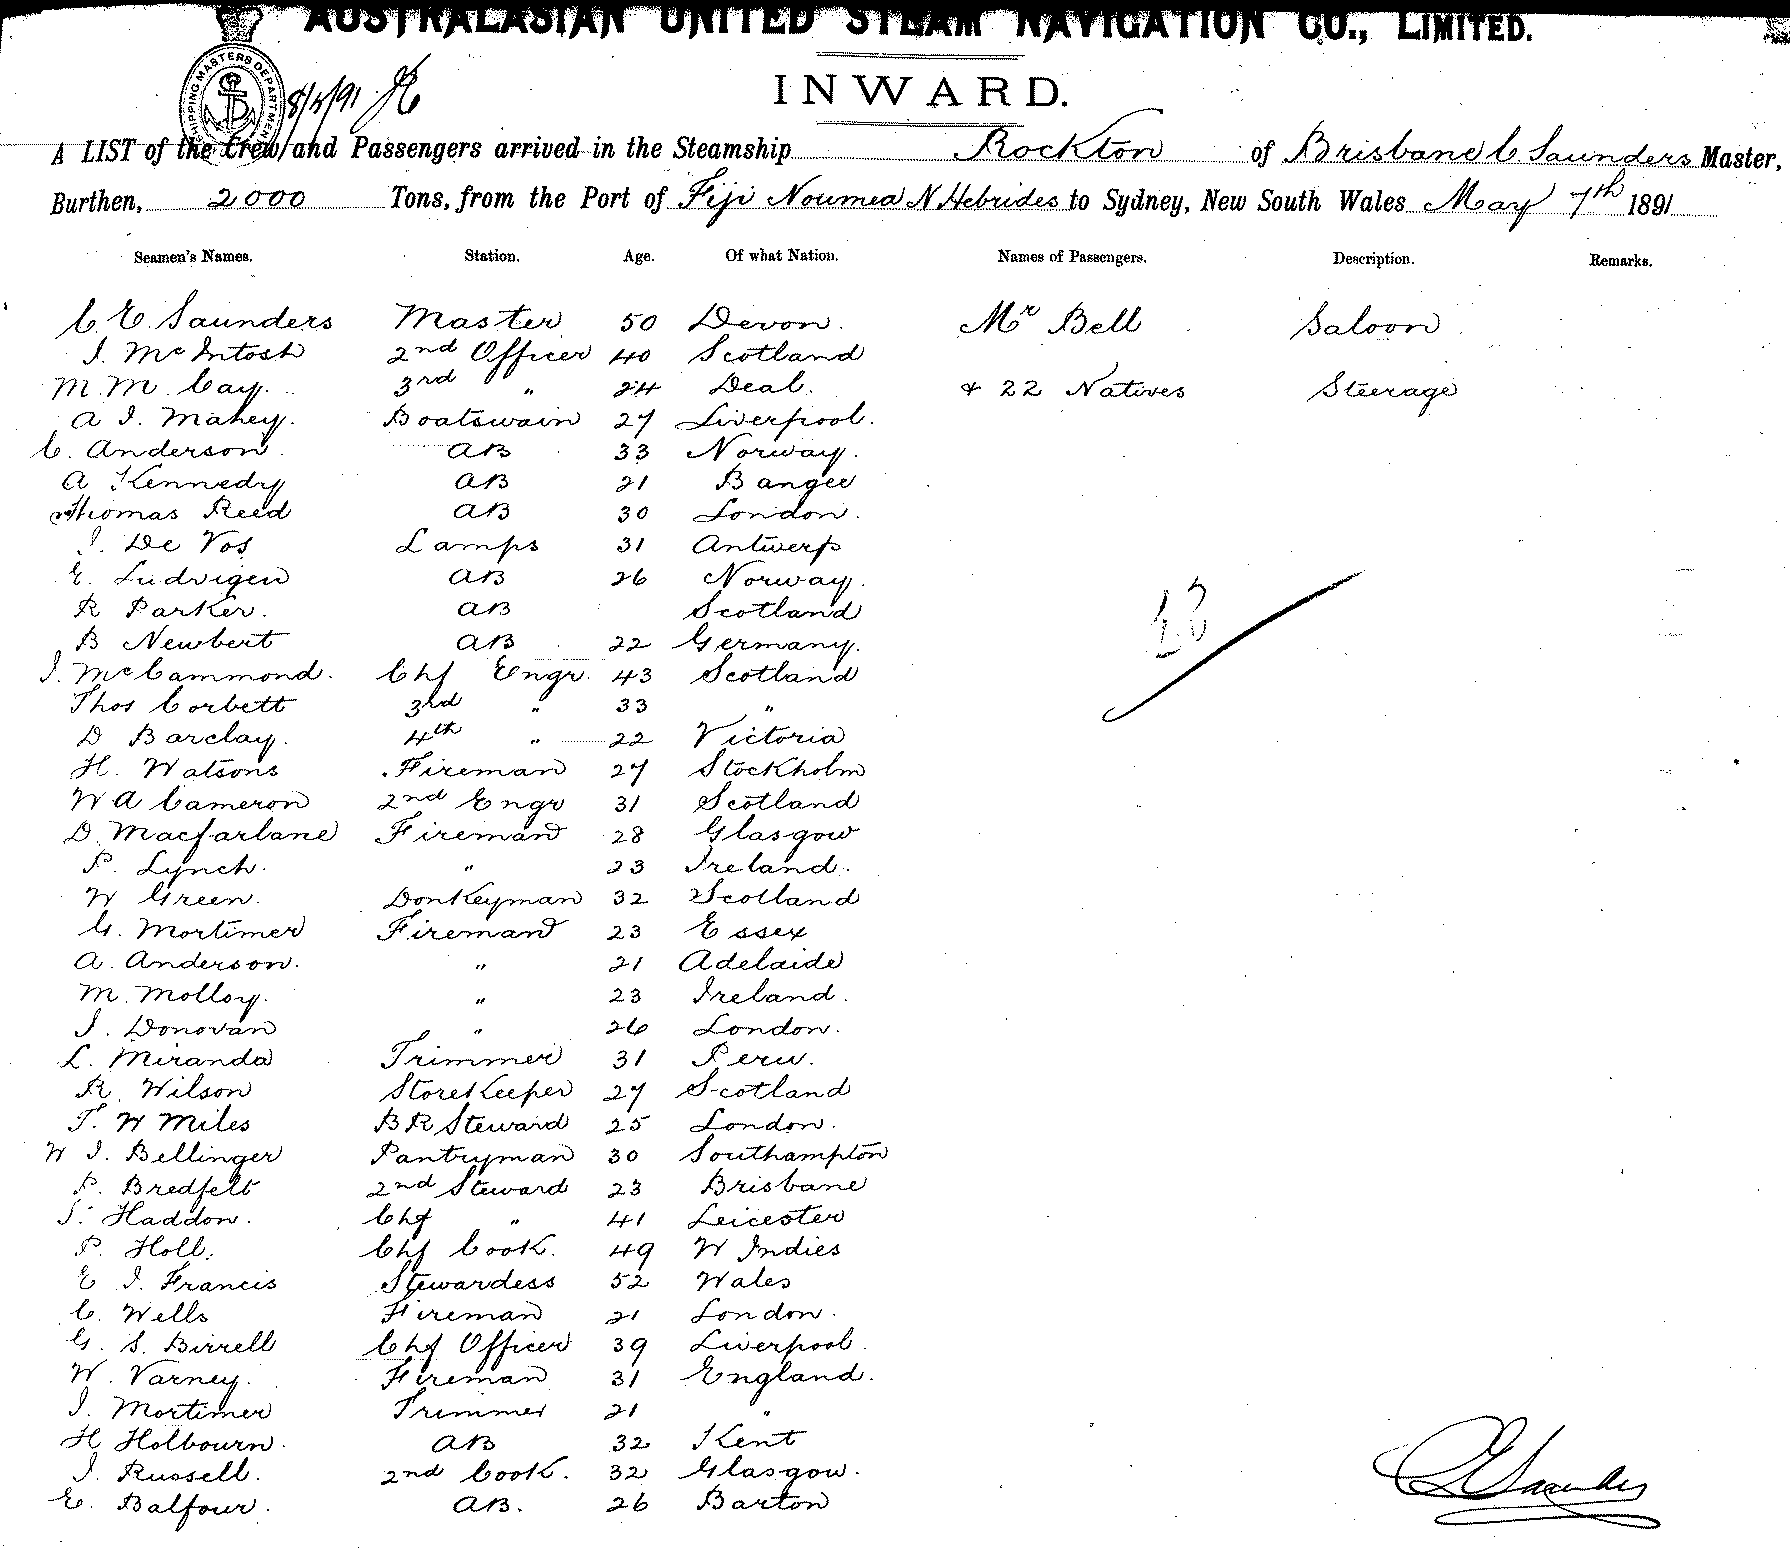 AUSTRALASIAN UNITED STEAM NAVIGATION CO., LIMITED.
SHIPPING MASTERS DEPARTMENT
8/5/91
INWARD.
A LIST of the Crew and Passengers arrived in the Steamship Rockton of Brisbane C Saunders Master,
Burthen, 2000 Tons, from the Port of Fiji Noumea N Hebrides to Sydney, New South Wales May 7th 1891
Seamen's Names. Station. Age. Of what Nation. Names of Passengers. Description. Remarks.
C. E. Saunders Master 50 Devon. Mr Bell Saloon
J. McIntosh 2nd Officer 40 Scotland
M. M. Cay. 3rd " 24 Deal. & 22 Natives Steerage
A J. Mahey. Boatswain 27 Liverpool.
C. Anderson. AB 33 Norway.
A Kennedy AB 21 Bangee
Thomas Reed AB 30 London.
J. De Vos Lamps 31 Antwerp
E. Ludvigen AB 26 Norway.
R Parker. AB Scotland
B Newbert AB 22 Germany.
J. McCammond. Chf Engr. 43 Scotland
Thos Corbett 3rd " 33 "
D Barclay. 4th " 22 Victoria
H. Watsons Fireman 27 Stockholm
W A Cameron 2nd Engr 31 Scotland
D. Macfarlane Fireman 28 Glasgow
P. Lynch. " 23 Ireland.
W Green. Donkeyman 32 Scotland
G. Mortimer Fireman 23 Essex
A. Anderson. " 21 Adelaide
M. Molloy. " 23 Ireland.
J. Donovan " 26 London.
L. Miranda Trimmer 31 Peru.
R. Wilson Storekeeper 27 Scotland
T. W Miles BR Steward 25 London.
W J. Bellinger Pantryman 30 Southampton
P. Bredfelt 2nd Steward 23 Brisbane
S. Haddon. Chf " 41 Leicester
P. Holl. Chf Cook. 49 W Indies
E J. Francis Stewardess 52 Wales
C. Wells Fireman 21 London.
G. S. Birrell Chf Officer 39 Liverpool.
W. Varney. Fireman 31 England.
J. Mortimer Trimmer 21 "
H Holbourn. AB 32 Kent
J. Russell. 2nd Cook. 32 Glasgow.
E. Balfour. AB. 26 Barton
C E Saunders